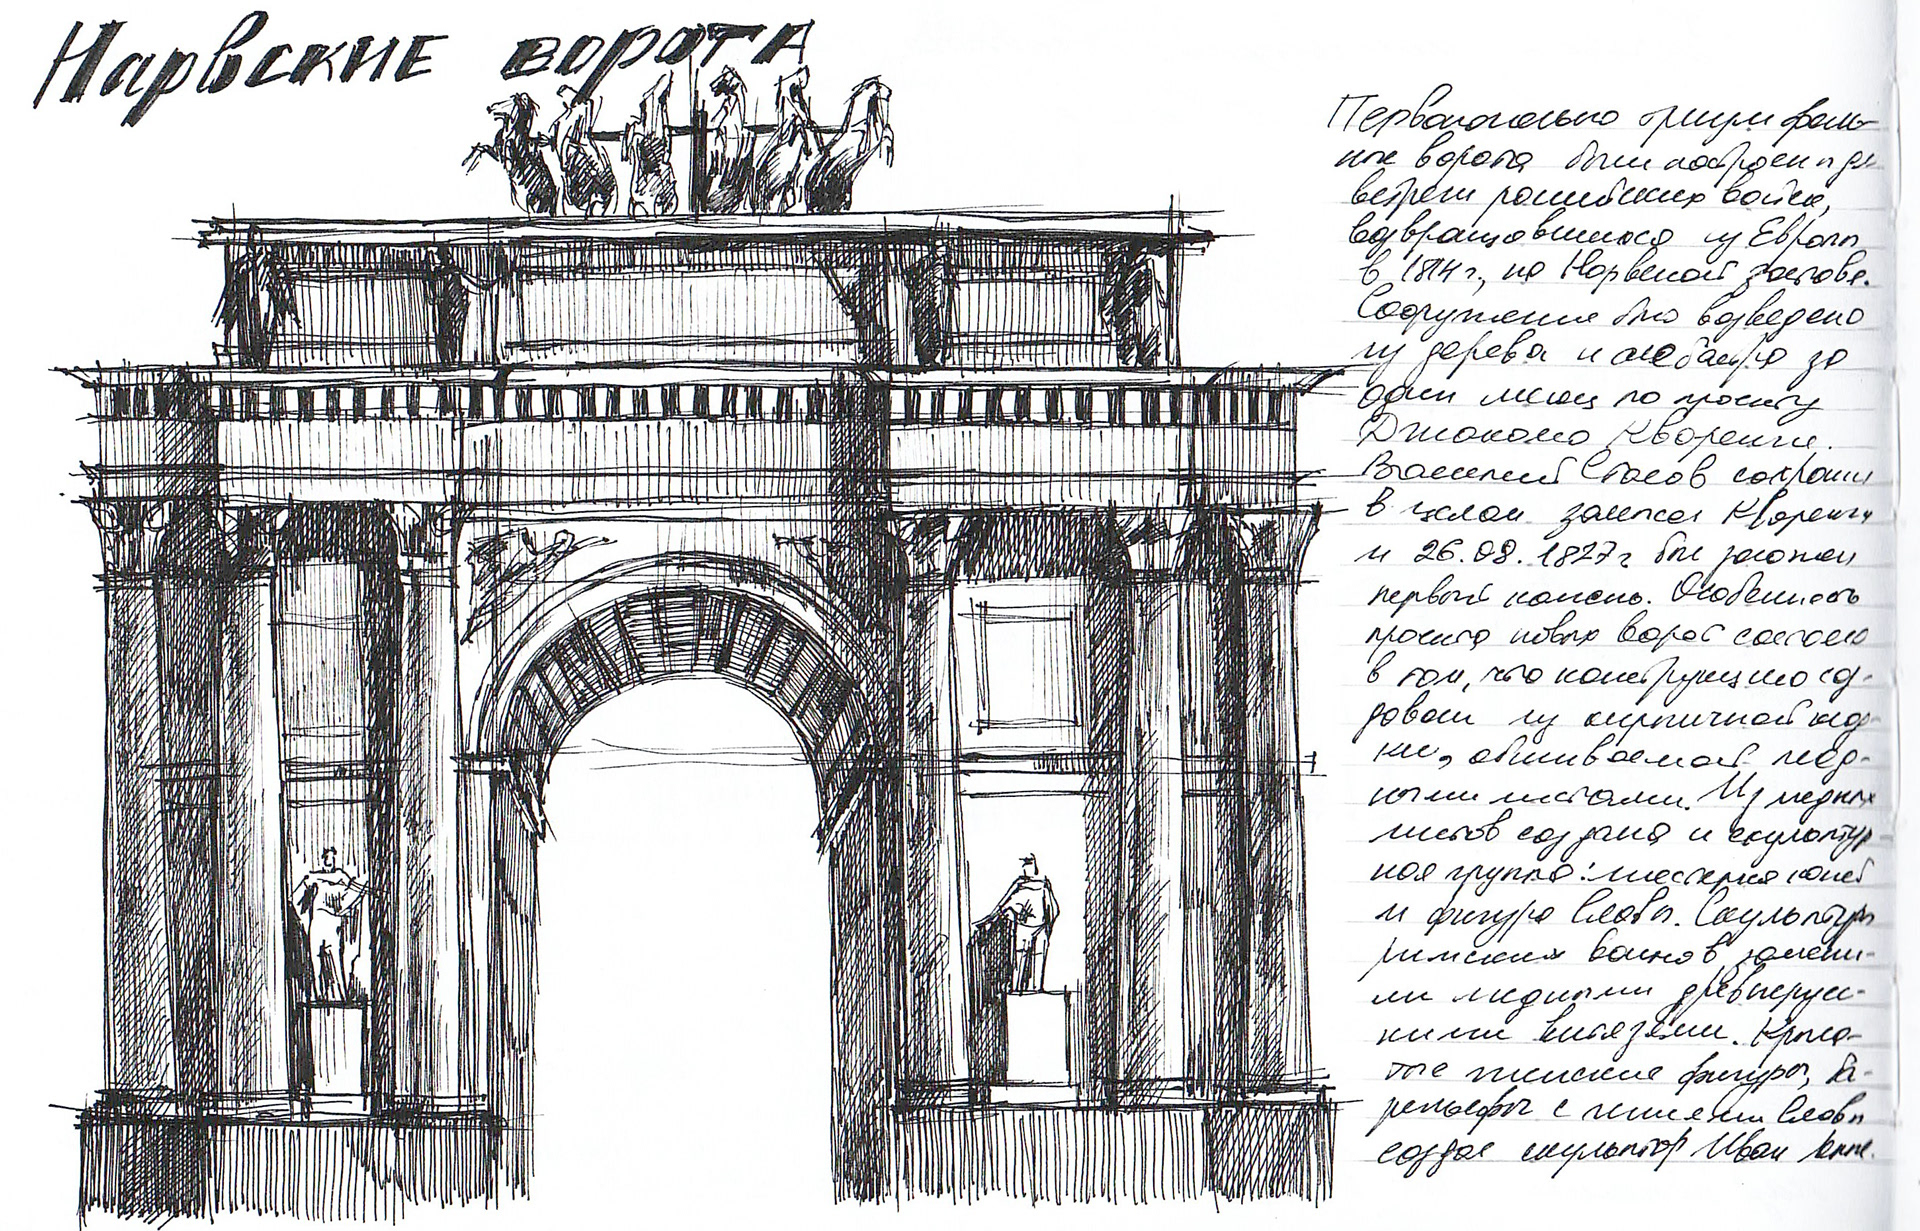 Нарвские ворота
Первоначально триумфаль-
ные ворота были построены для
встречи российских войск,
возвращавшихся из Европы
в 1814 г., на Нарвской заставе.
Сооружение было возведено
из дерева и алебастра за
один месяц по проекту
Джакомо Кваренги.
Василий Стасов сохранил
в целом замысел Кваренги
и 26.08.1827 г был заложен
первый камень. Особенность
проекта новых ворот состояла
в том, что конструкцию соз-
давали из кирпичной клад-
ки, обшиваемой мед-
ными листами. Из медных
листов создана и скульптур-
ная группа: шестерка коней
и фигура Славы. Скульптуры
римских воинов замени-
ли медными древнерусс-
кими витязями. Крыла-
тые женские фигуры, ба-
рельефы с гениями Славы
создал скульптор Иван Леппе.